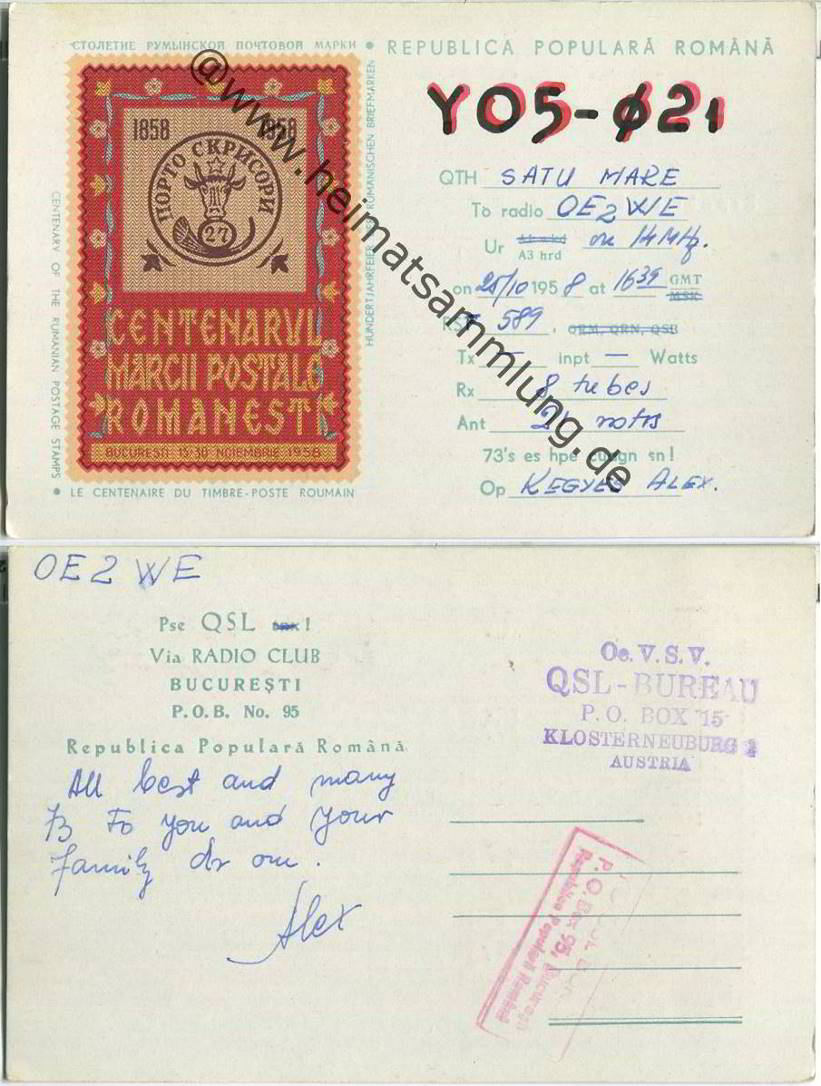 СТОЛЕТИЕ РУМЫНСКОЙ ПОЧТОВОЙ МАРКИ • REPUBLICA POPULARĂ ROMÂNĂ
CENTENARY OF THE RUMANIAN POSTAGE STAMPS
HUNDERTJAHRFEIER RUMÄNISCHEN BRIEFMARKEN
1858 1958
ПОРТО СКРИСОРИ
27
CENTENARUL
MĂRCII POSTALE
ROMÂNEȘTI
BUCUREȘTI 15-30 NOIEMBRIE 1958
• LE CENTENAIRE DU TIMBRE-POSTE ROUMAIN
YO5-ø21
QTH SATU MARE
To radio OE2WE
Ur A3 hrd on 14 MHz.
on 25/10 1958 at 16 39 GMT MSK
589, QRM, QRN, QSB
Tx — inpt — Watts
Rx 8 tubes
Ant
73's es hpe cuagn sn!
Op KEGYES ALEX.
@www.heimatsammlung.de
OE2WE
Pse QSL !
Via RADIO CLUB
BUCUREȘTI
P.O.B. No. 95
Republica Populară Română
All best and many
73 To you and your
family dr om.
Alex
Oe. V. S. V.
QSL-BUREAU
P. O. BOX 15
KLOSTERNEUBURG 2
AUSTRIA
P.O. Box 95, București
Republica Populară Română